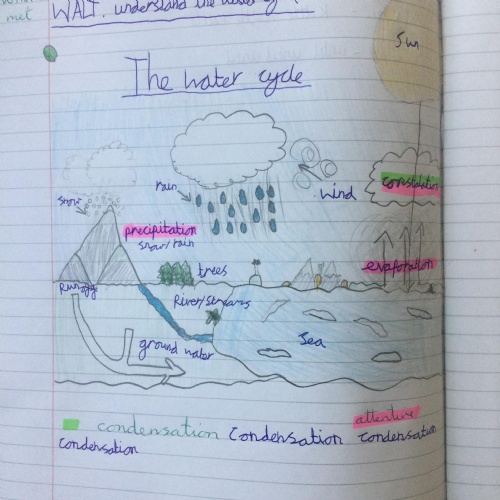 met
WALT: understand the water
Sun
The water cycle
rain
snow
wind
precipitation
snow/rain
trees
evaporation
Runoff
River/streams
ground water
Sea
attentive
condensation Condensation condensation
Condensation